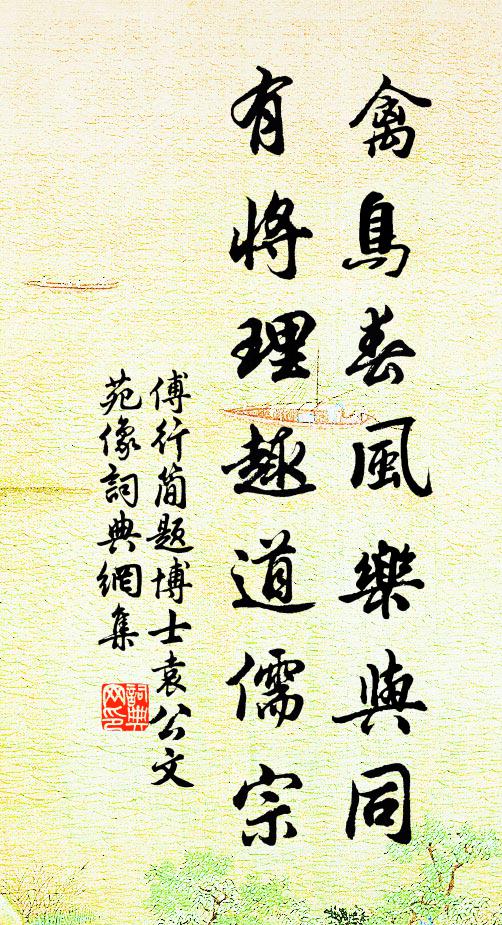 禽鳥春風樂與同
有將理趣道儒宗
傅行簡題博士袁公文
苑像詞典網集
詞典
网印